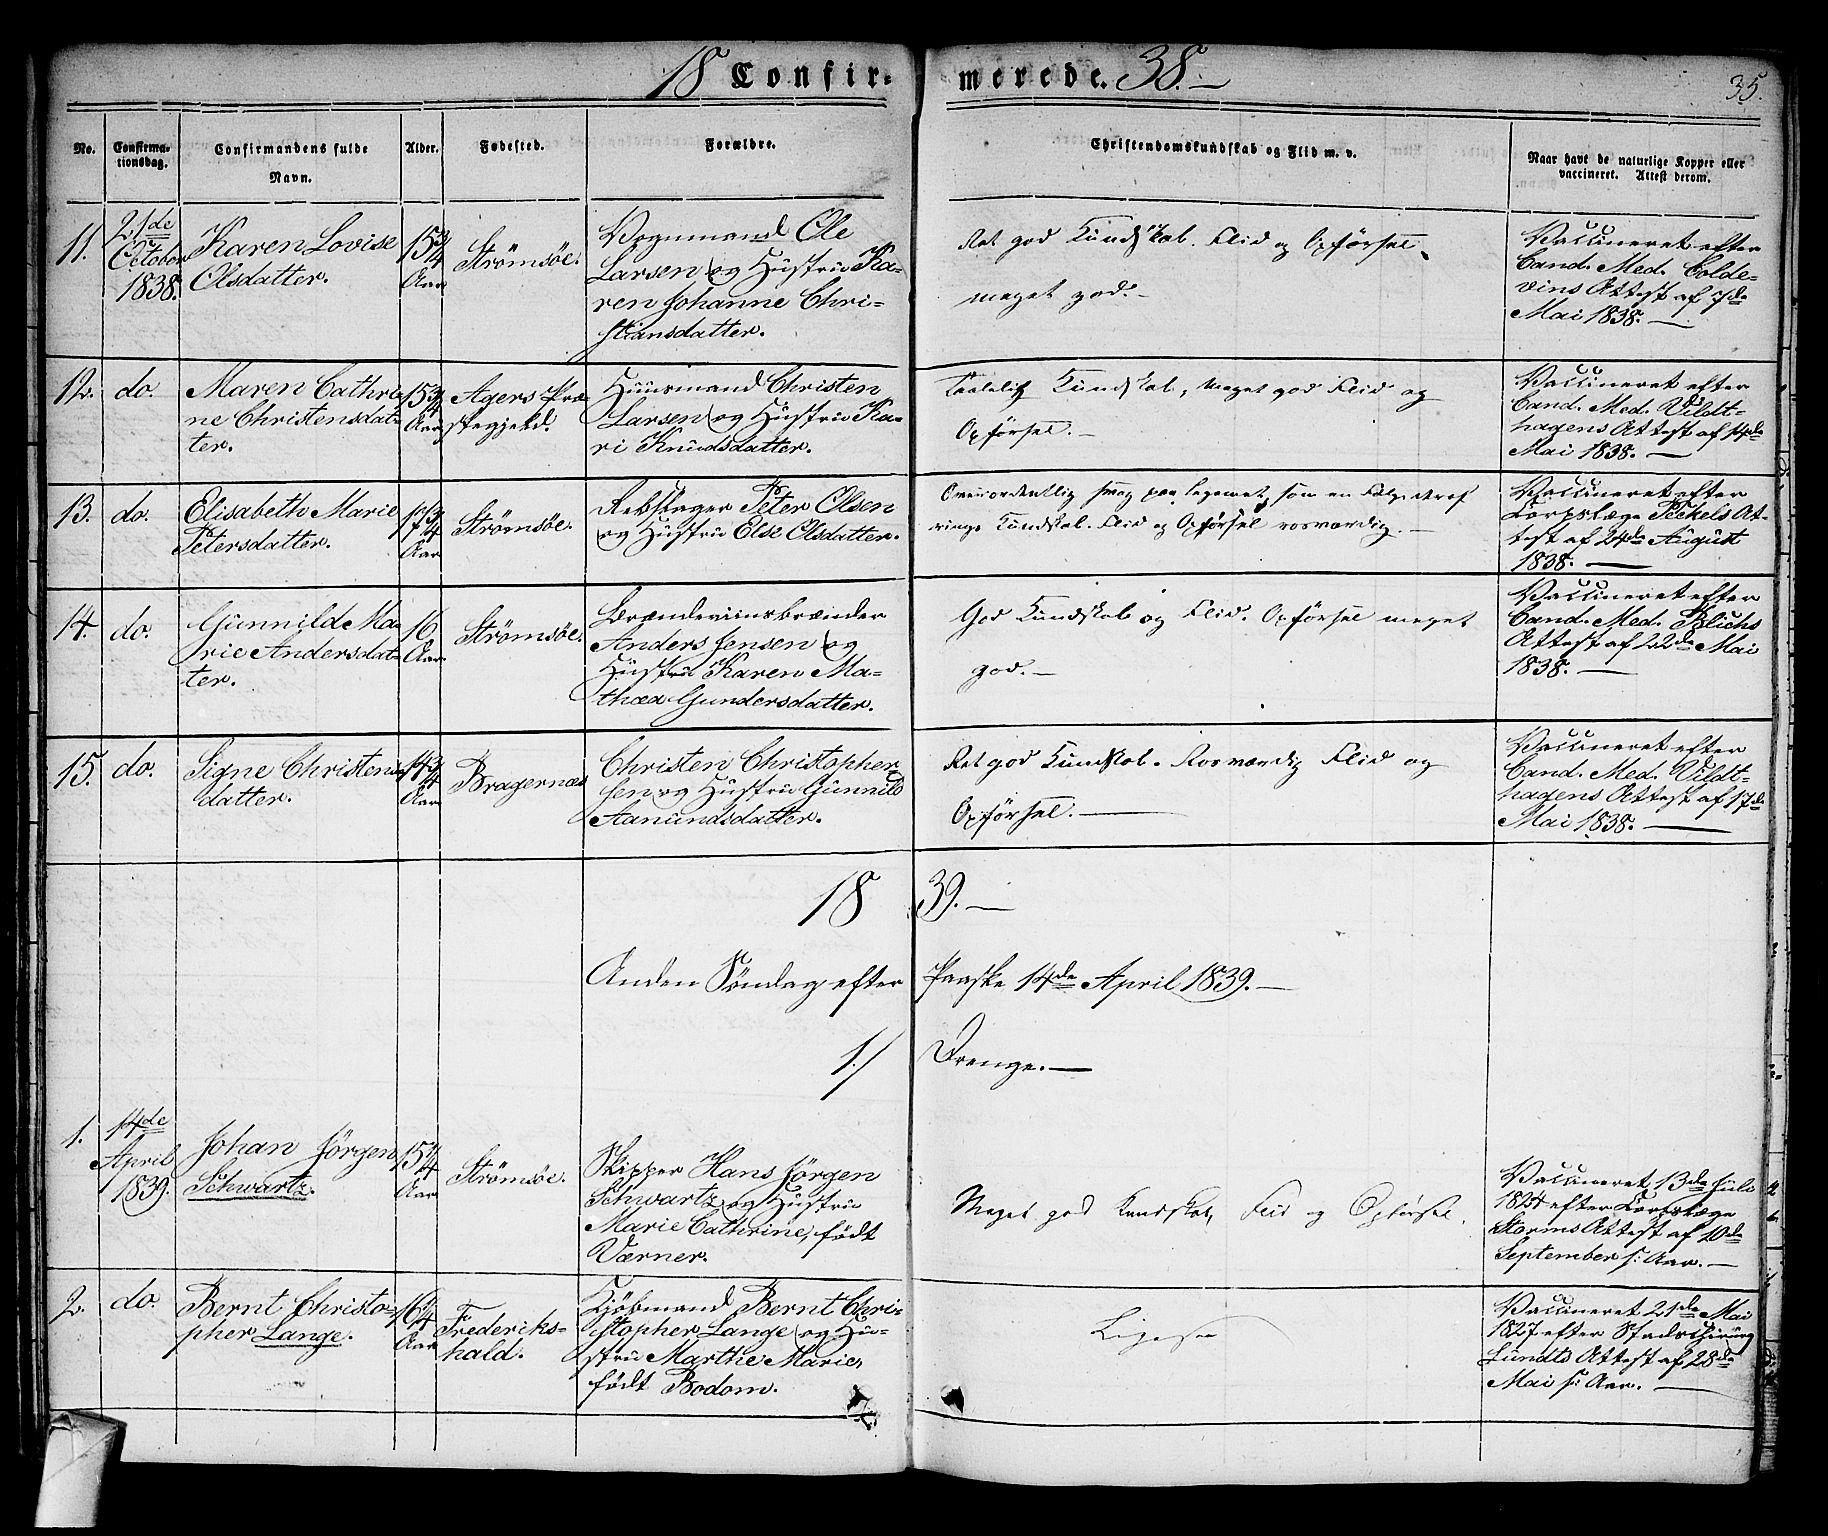 18 Confir- merede. 38.
35.
No.
Confirma-
tionsdag.
Confirmandens fulde
Navn.
Alder.
Fødested.
Forældre.
Christendomskundskab og Flid m. v.
Naar havt de naturlige Kopper eller
vaccineret. Attest derom.
11.
21de
October
1838.
Karen Lovise
Olsdatter.
15 3/4
Aar
Strömsöe.
Vognmand Ole
Larsen og Hustru Ka-
ren Johanne Chri-
stiansdatter.
Ret god Kundskab. Flid og Opförsel
meget god.
Vaccineret efter
Cand. Med. Colde-
vins Attest af 7de
Mai 1838.
12.
do.
Maren Cathri-
ne Christensdat-
ter.
15 3/4
Aar
Agers Præ-
stegjeld.
Huusmand Christen
Larsen og Hustru Ka-
ri Knudsdatter.
Taalelig Kundskab, meget god Flid og
Opförsel.
Vaccineret efter
Cand. Med. Vildt-
hagens Attest af 14de
Mai 1838.
13.
do.
Elisabeth Marie
Petersdatter.
17 3/4
Aar
Strömsöe.
Rebslager Peter Olsen
og Hustru Else Olsdatter.
Overordentlig svag paa Legemet, som en Fölge deraf
ringe Kundskab. Flid og Opförsel rosværdig.
Vaccineret efter
Corpslæge Peckels At-
test af 24de August
1838.
14.
do.
Gunnild Ma-
rie Andersdat-
ter.
16
Aar
Strömsöe.
Brændeviinsbrænder
Anders Jensen og
Hustru Karen Ma-
thea Gundersdatter.
God Kundskab og Flid. Opförsel meget
god.
Vaccineret efter
Cand. Med. Blichs
Attest af 22de Mai
1838.
15.
do.
Signe Christens-
datter.
14 3/4
Aar
Bragernæs
Christen Christopher-
sen og Hustru Gunnild
Aanundsdatter.
Ret god Kundskab. Rosværdig Flid og
Opförsel.
Vaccineret efter
Cand. Med. Vildt-
hagens Attest af 17de
Mai 1838.
18 39.
Anden Söndag efter Paaske 14de April 1839.
1./ Drenge.
1.
14de
April
1839.
Johan Jörgen
Schwartz.
15 1/4
Aar
Strömsöe.
Skipper Hans Jörgen
Schwartz og Hustru
Marie Cathrine, födt
Værner.
Meget god Kundskab, Flid og Opförsel.
Vaccineret 13de Juli
1824 efter Corpslæge
Storms Attest af 10de
September s: Aar.
2.
do.
Bernt Christo-
pher Lange.
16 1/4
Aar
Frederiks-
hald.
Kjöbmand Bernt Chri-
stopher Lange og Hu-
stru Marthe Marie,
födt Bodom.
Ligesaa
Vaccineret 21de Mai
1827 efter Stadschirurg
Lundts Attest af 28de
Mai s: Aar.